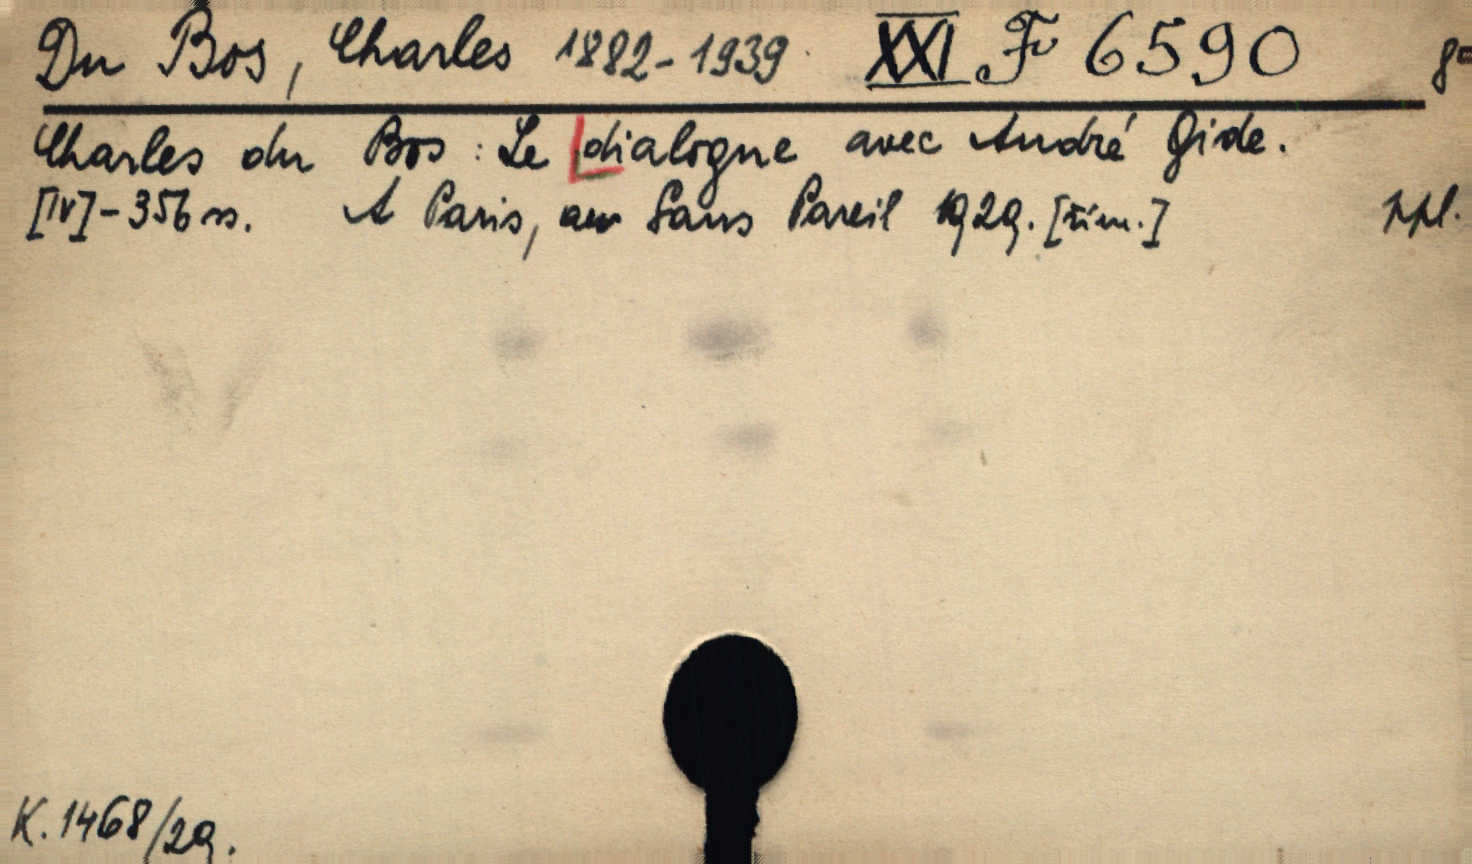 Du Bos, Charles 1882-1939. XXI F 6590 8°
Charles du Bos: Le dialogue avec André Gide.
[IV]-356 ss. A Paris, au Sans Pareil 1929. [řím.] ppl.
K. 1468/29.